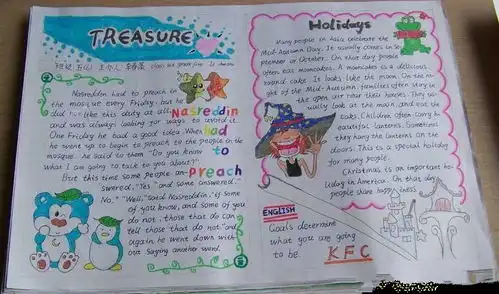 TREASURE
Nasreddin had to preach in
the mosque every Friday, but he
did not like this duty at all
and was always looking for ways to avoid it.
One Friday he had a good idea. When
he went up to begin to preach to the people in the
mosque. He said to them "Do you know
what I am going to talk to you about?"
But this time some people an-
swered, "Yes" and some answered "
No." "Well," said Nasreddin, "if some
of you know, and some of you
do not. those that do can
tell those that do not" and
again he went down with-
out saying another word.
Nasreddin
had
to
preach
Holidays
Many people in Asia celebrate the
Mid-Autumn Day. It usually comes in Se-
ptember or October. On that day people
often eat mooncakes. A mooncakes is a delicious
round cake. It looks like the moon. On the ni-
ght of the Mid-Autumn families often stay in
the open air near their houses. They us-
ually look at the moon, and eat the
cakes. Children often carry
beautiful lanterns. Sometimes
they hang the lanterns on the
doors. This is a special holiday
for many people.
Christmas is an important ho-
liday in America. On that day
people share happiness.
ENGLISH
Goals determine
what you are going
to be.
KFC